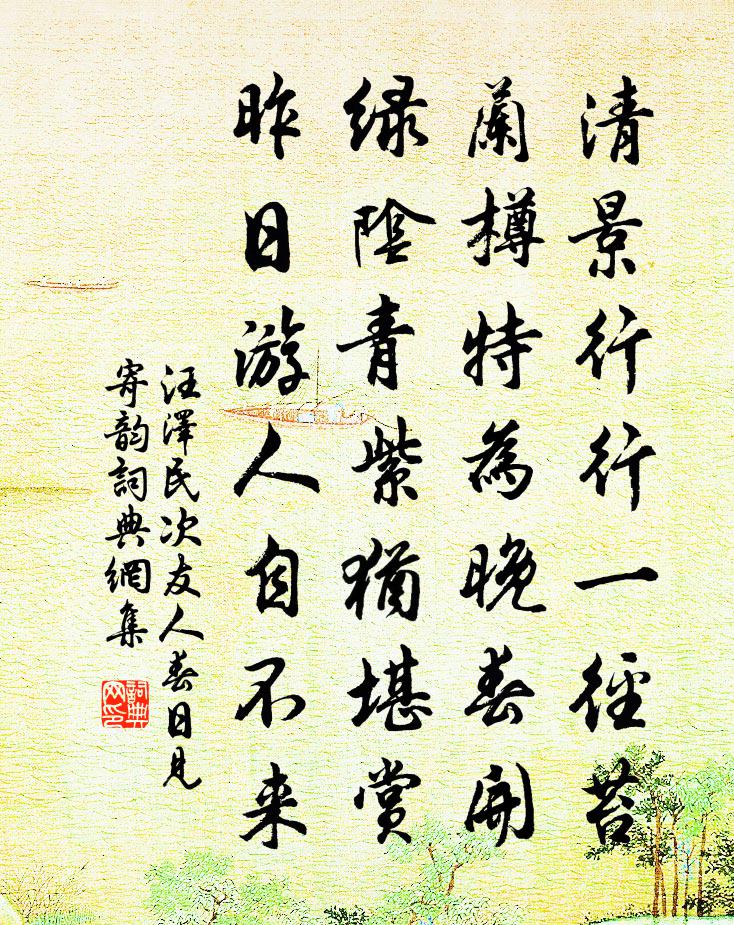 清景行行一徑苔
蘭樽特為晚春開
緑陰青紫猶堪賞
昨日游人自不来
汪澤民次友人春日見
寄韵詞典網集
詞典
网印